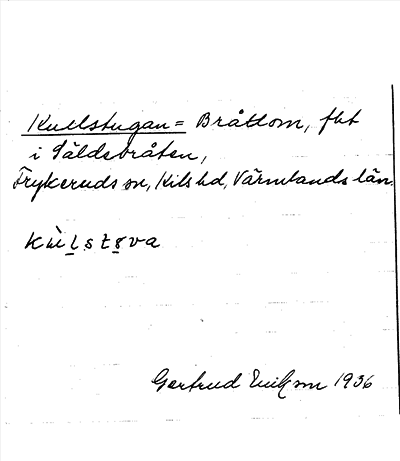 Kullstugan = Bråttom, fht
i Säldebråten,
Frykeruds sn, Kils hd, Värmlands län.
kùl̲stɤ̲va
Gertrud Erikson 1936